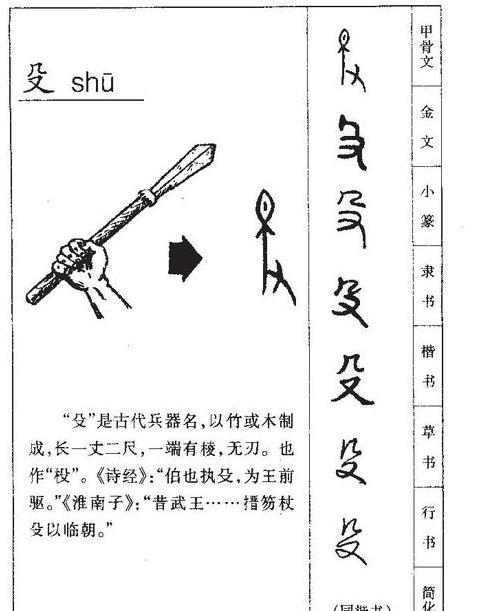 殳 shū
“殳”是古代兵器名，以竹或木制
成，长一丈二尺，一端有棱，无刃。也
作“杸”。《诗经》：“伯也执殳，为王前
驱。”《淮南子》：“昔武王……搢笏杖
殳以临朝。”
甲骨文
金文
小篆
隶书
楷书
草书
行书
简化
殳
殳
殳
殳
殳
殳
殳
(同楷书)